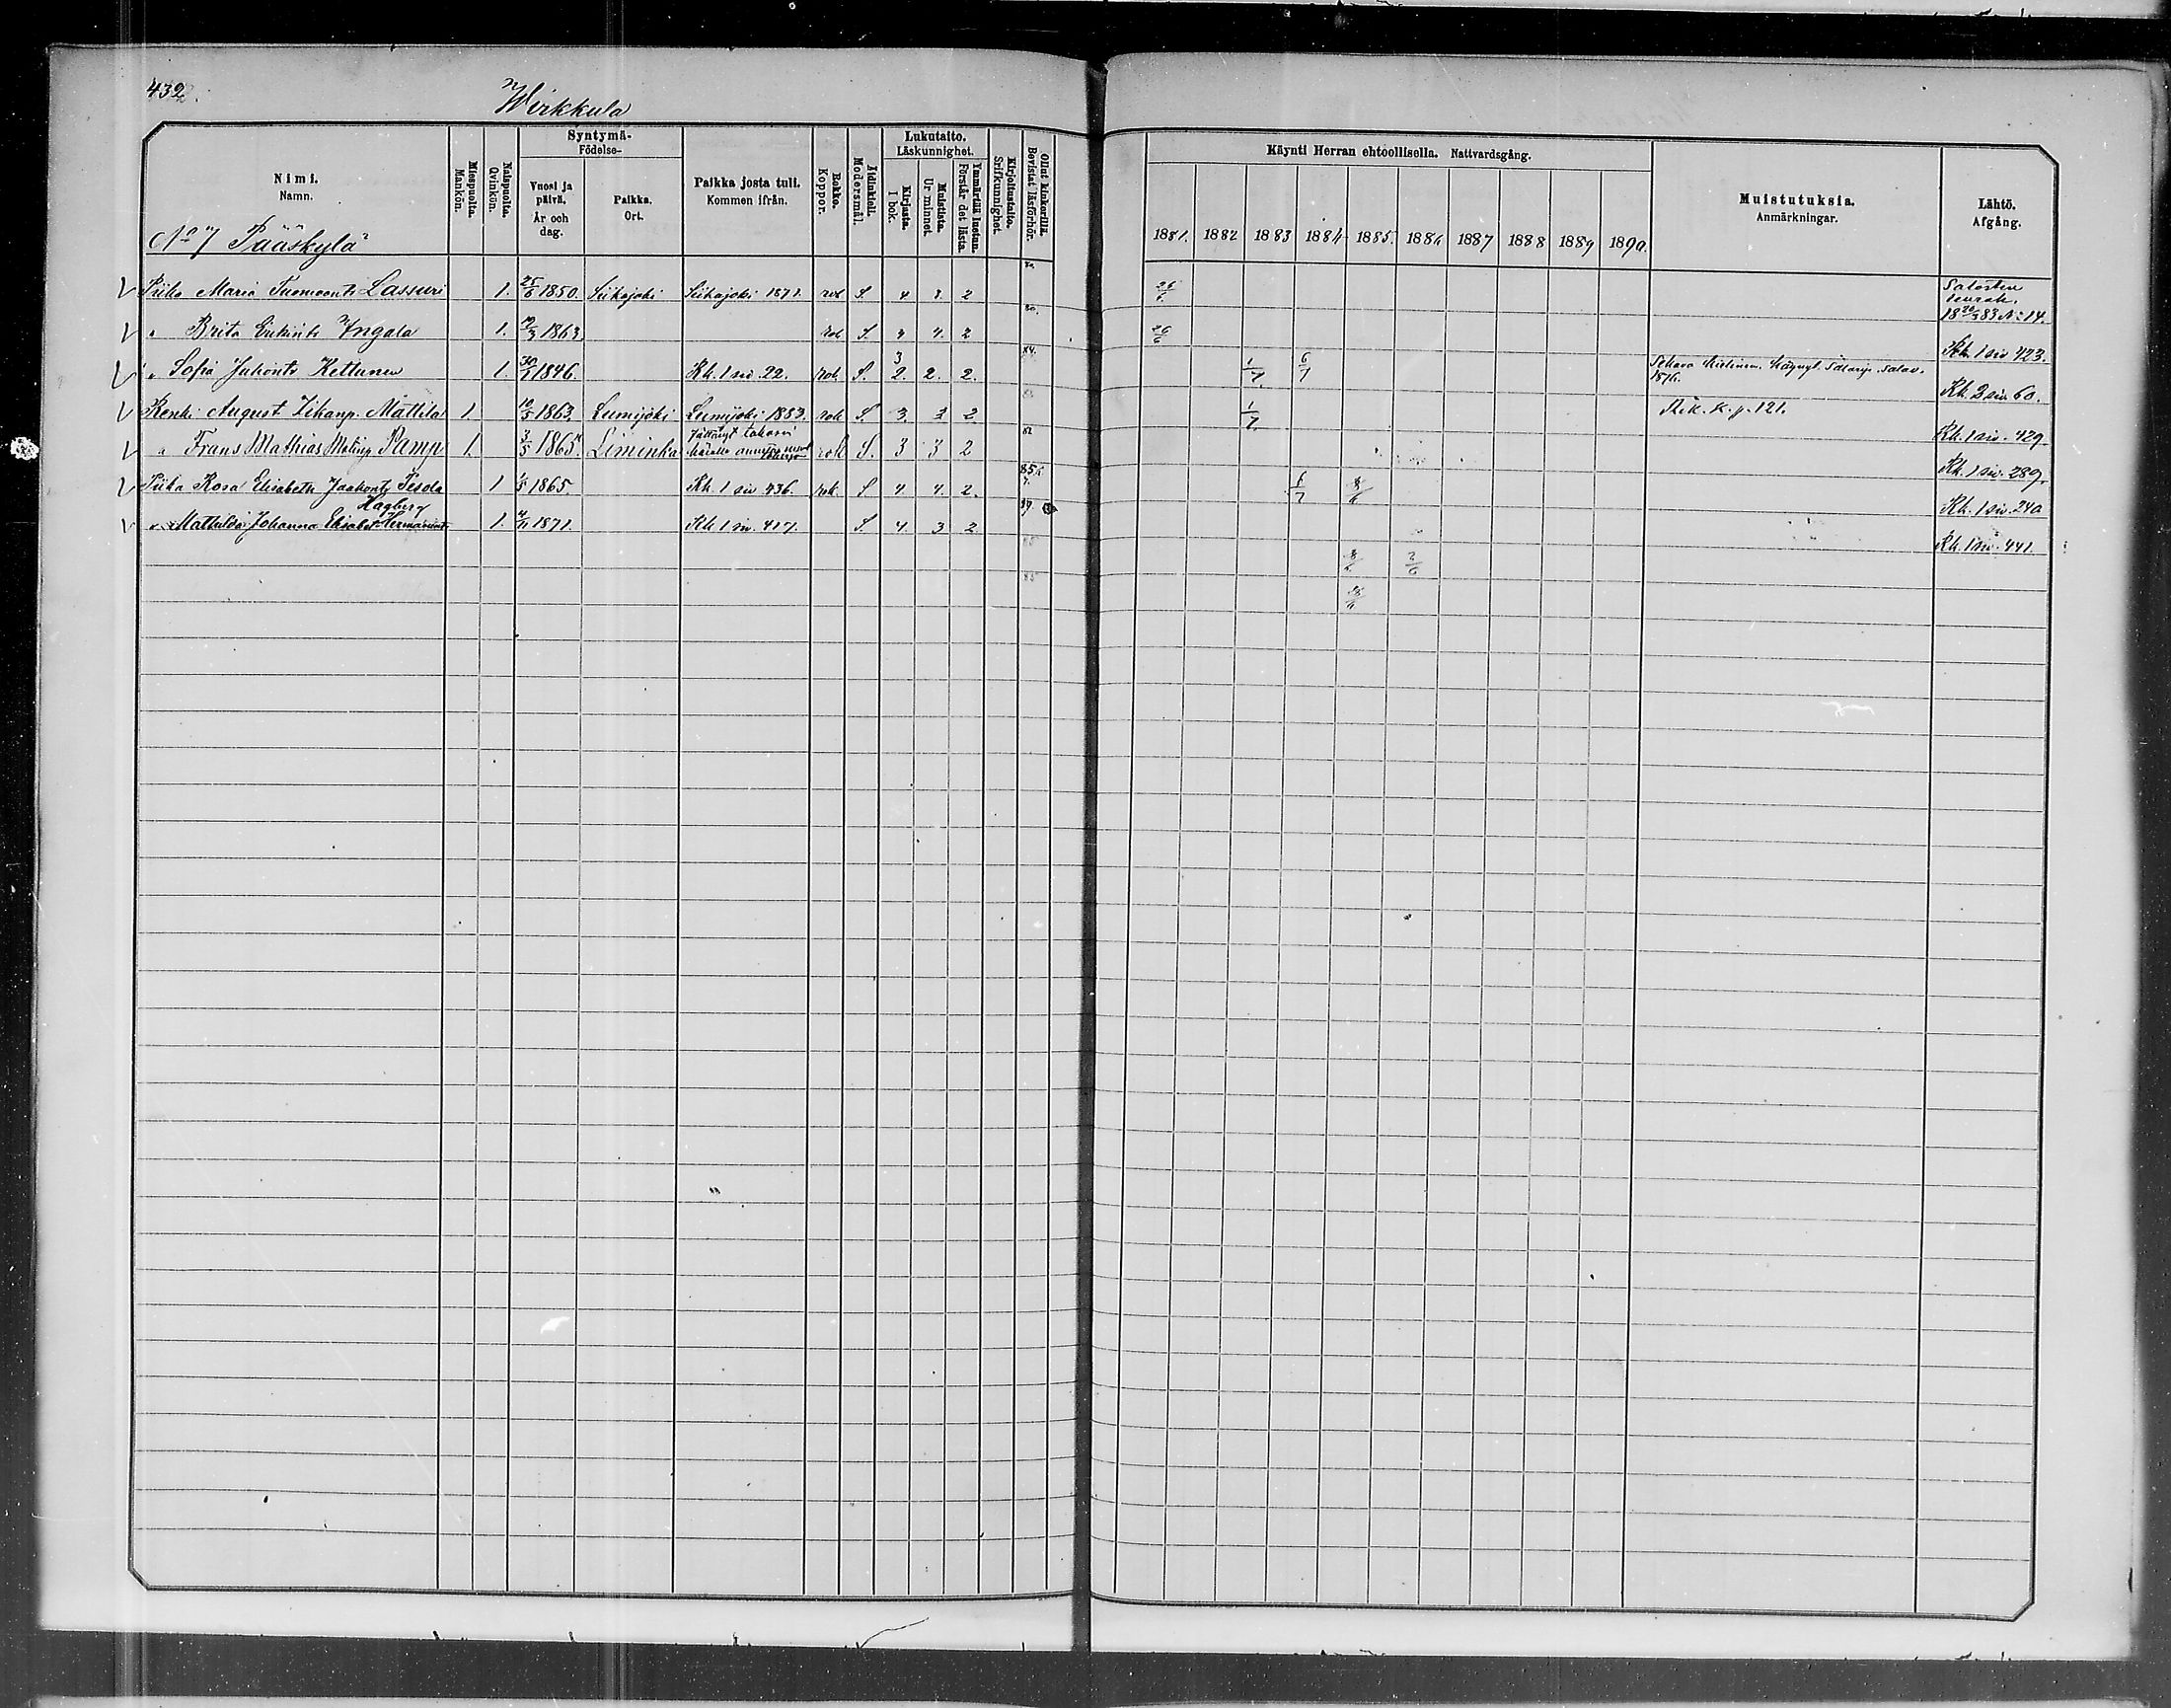 432.
Wirkkula
Nimi.
Namn.
Miespuolia.
Mankön.
Naispuolia.
Qvinkön.
Syntymä-
Födelse-
Vuosi ja päivä.
År och dag.
Paikka.
Ort.
Paikka josta tuli.
Kommen ifrån.
Rokko.
Koppor.
Äidinkieli.
Modersmål.
Lukutaito.
Läskunnighet.
Kirjasta.
I bok.
Muistista.
Ur minnet.
Ymmärtää luetun.
Förstår det lästa.
Kirjoitustaito.
Srifkunnighet.
Ollut kinkerillä.
Bevistat läsförhör.
Käynti Herran ehtoollisella. Nattvardsgång.
1881. 1882 1883 1884 1885. 1886 1887 1888 1889 1890.
Muistutuksia.
Anmärkningar.
Lähtö.
Afgång.
No 7 Pääskylä
Piika Maria Tuomaant. Lassuri 1. 25/6 1850. Siikajoki Siikajoki 1871. rok S. 4 3. 2 26/6 Salosten seurak. 18 83 N:14.
" Brita Erkint. Yngala 1. 1863 rok S. 3 4. 2 26/6 Kk. 1 siv 423.
" Sofia Juhont. Kettunen 1. 30/1 1846. Kk. 1 siv. 22. rok S. 3 2. 2. 2. 1/7 6/7 1876. Kk. 2 siv 60.
Renki August Zikanp. Mattila 1 1863 Lumijoki Lumijoki 1883. rok S 3. 3 2 1/7 Rik. k. p. 121. Kk. 1 siv. 429
" Frans Mathias Matinp. Pamp 1. 3/5 1865. Liminka rok S. 3 3 2 Kk. 1 siv. 289.
Piika Rosa Elisabeth Jaakont. Tesola 1 1865. Kk. 1 siv 436. rok S 4. 4. 2. 6/7 8/6 Kk. 1 siv. 240
Hagberg
" Mathilda Johanna Elisabet Hermanint. 1. 4/11 1871. Kk. 1 siv. 417. S 4. 3 2 Kk. 1 siv. 441.